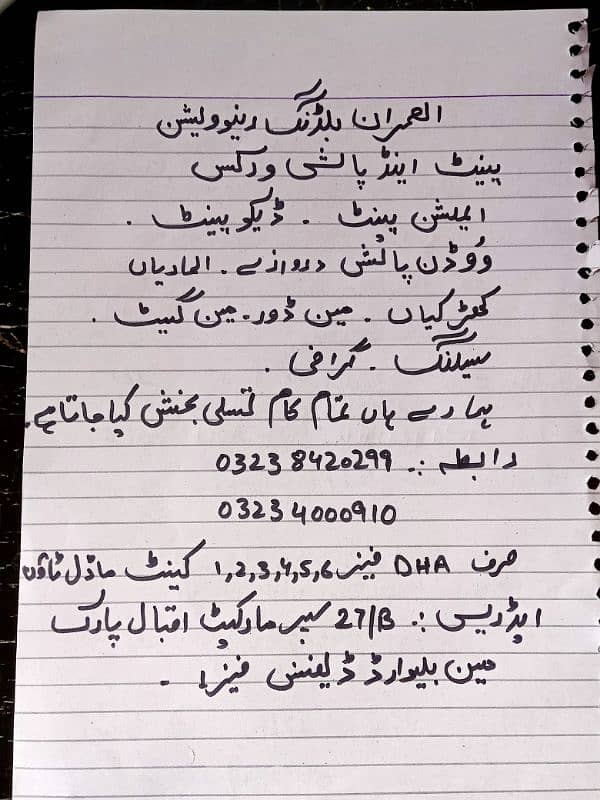 العمران بلڈنگ رینوولیشن
پینٹ اینڈ پالشی ورکس
ایملشن پینٹ . ڈیکو پینٹ .
ووڈن پالش دروازے . الماریاں
کھڑکیاں . مین ڈور . مین گیٹ .
سیلنگ . گرافی .
ہمارے ہاں تمام کام تسلی بخش کیا جاتا ہے.
رابطہ :. 03238420299
03234000910
صرف DHA فیز 1,2,3,4,5,6 کینٹ ماڈل ٹاؤن
ایڈریس :. 27/B سپر مارکیٹ اقبال پارک
مین بلیوارڈ ڈیفنس فیز 1 -